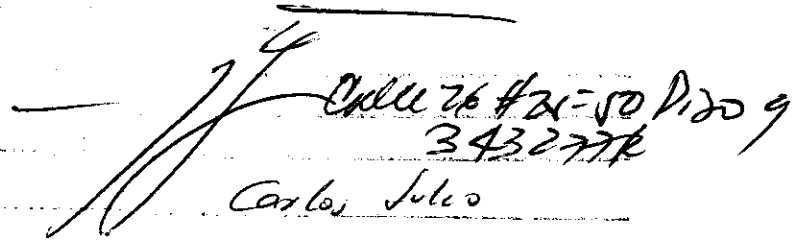 Calle 26 # 25-50 Piso 9
3432778
Carlos Julio